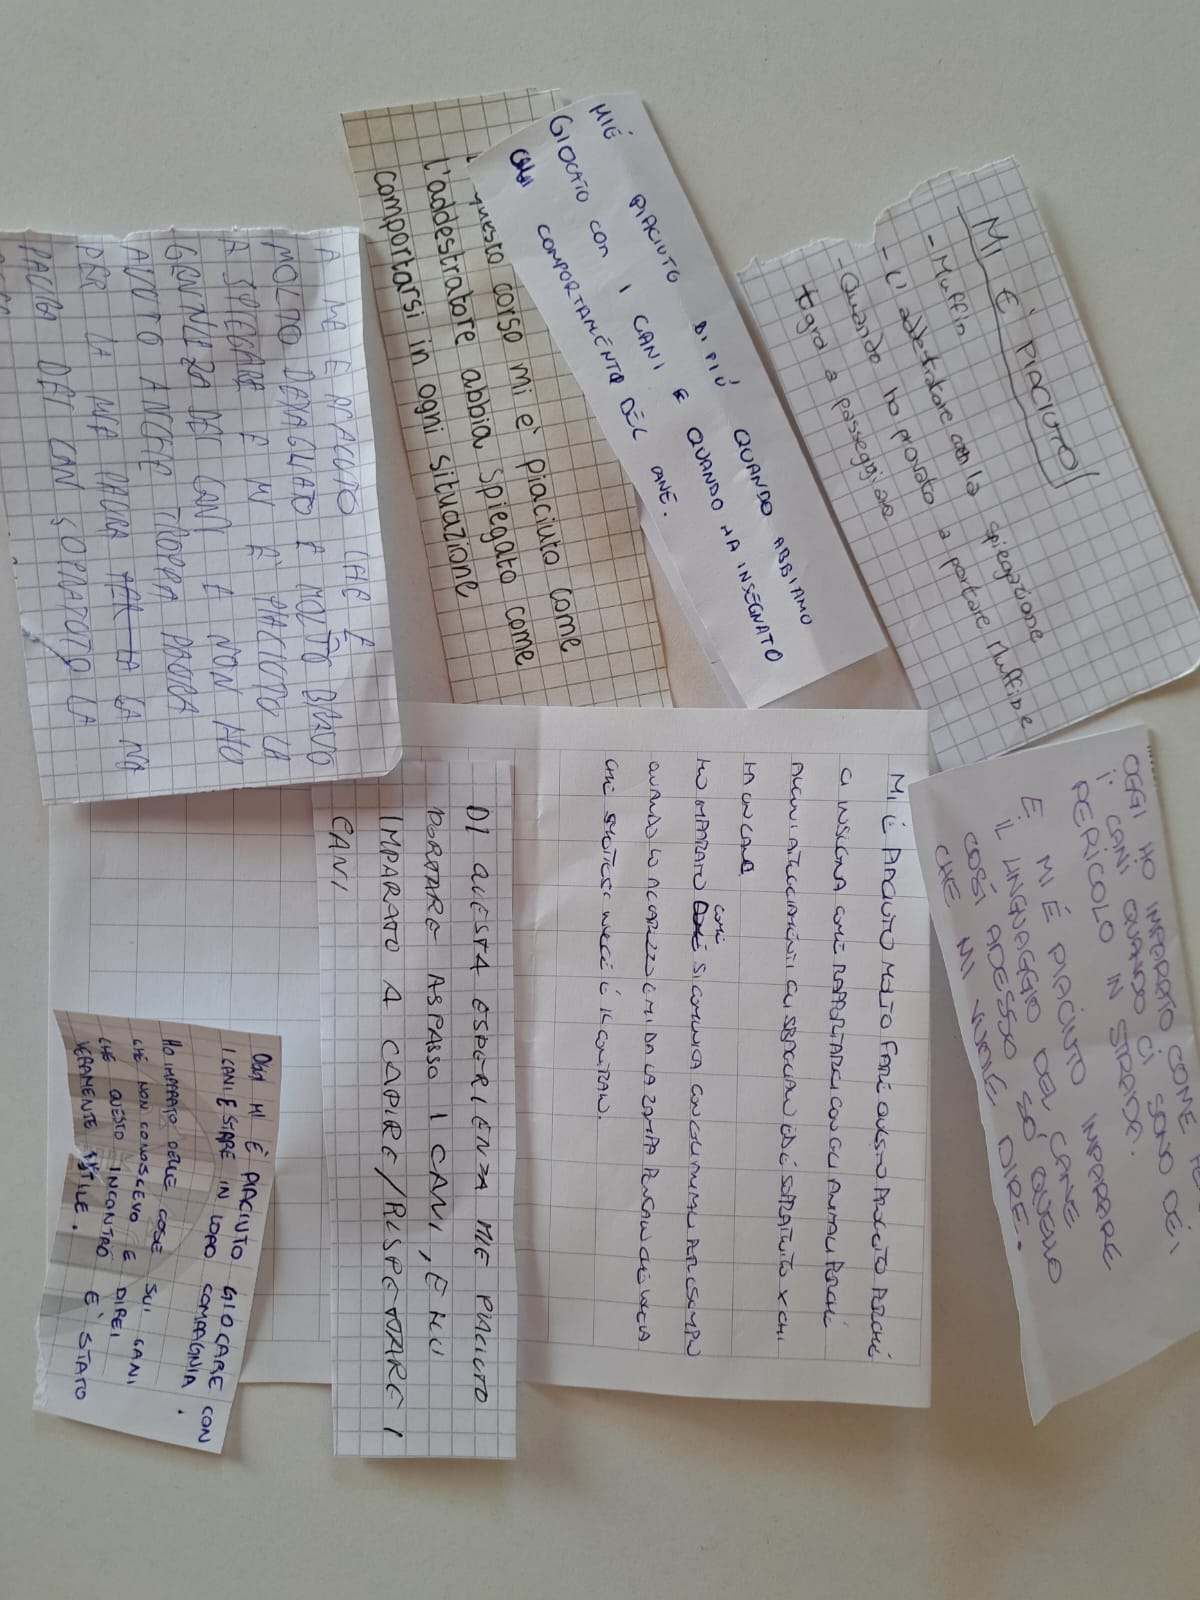 MI È PIACIUTO
- Muffin
- L'addestratore con la spiegazione
- Quando ho provato a portare Muffin e
tigra a passeggiare
MIÉ PIACIUTO DI PIÚ QUANDO ABBIAMO
GIOCATO CON I CANI E QUANDO HA INSEGNATO
COMPORTAMENTO DÈL CANE.
questo corso mi è piaciuto come
l'addestratore abbia spiegato come
comportarsi in ogni situazione
A ME E PIACIUTO CHE È
MOLTO DEDAGLIATO E MOLTO BRAVO
A SPIEGARE E MI È PIACIUTO LA
DEI CANI E NON HO
AVUTO ANCHE TROPPA PAURA
PER LA MIA PAURA LA MA
PAURA DEI CANI SOPRATUTO LA
OGGI HO IMPARATO COME
I CANI QUANDO CI SONO DEI
PERICOLO IN STRADE.
E MI È PIACIUTO IMPARARE
IL LINGUAGGIO DEL CANE
COSÌ ADESSO SÒ QUELLO
CHE MI VUOLE DIRE.
MI È PIACIUTO MOLTO FARE QUESTO PROGETTO PERCHÉ
CI INSEGNA COME RAPPORTARCI CON GLI ANIMALI PERCHÉ
ALCUNI ATTEGGIAMENTI CHE SBAGLIATI E SOPRATUTTO X CHI
HA UN CANE
HO IMPARATO COME SI COMUNICA CON GLI ANIMALI PER ESEMPIO
QUANDO LO ACCAREZZO E MI DA LA ZAMPA PENSAVO CHE VOGLIA
CHE SMETTESSI INVECE È IL CONTRARIO.
DI QUESTA ESPERIENZA MIE PIACIUTO
PORTARE ASPASSO I CANI, E HO
IMPARATO A CAPIRE/RISPETTARE I
CANI
OGGI MI È PIACIUTO GIOCARE CON
I CANI E STARE IN LORO COMPAGNIA.
HO IMPARATO DELLE COSE SUI CANI
CHE NON CONOSCEVO E DIREI
CHE QUESTO INCONTRO E' STATO
VERAMENTE UTILE.